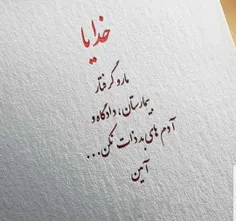 خدایا
مارو گرفتار
بیمارستان، دادگاه و
آدم های بد ذات نکن...
آمین